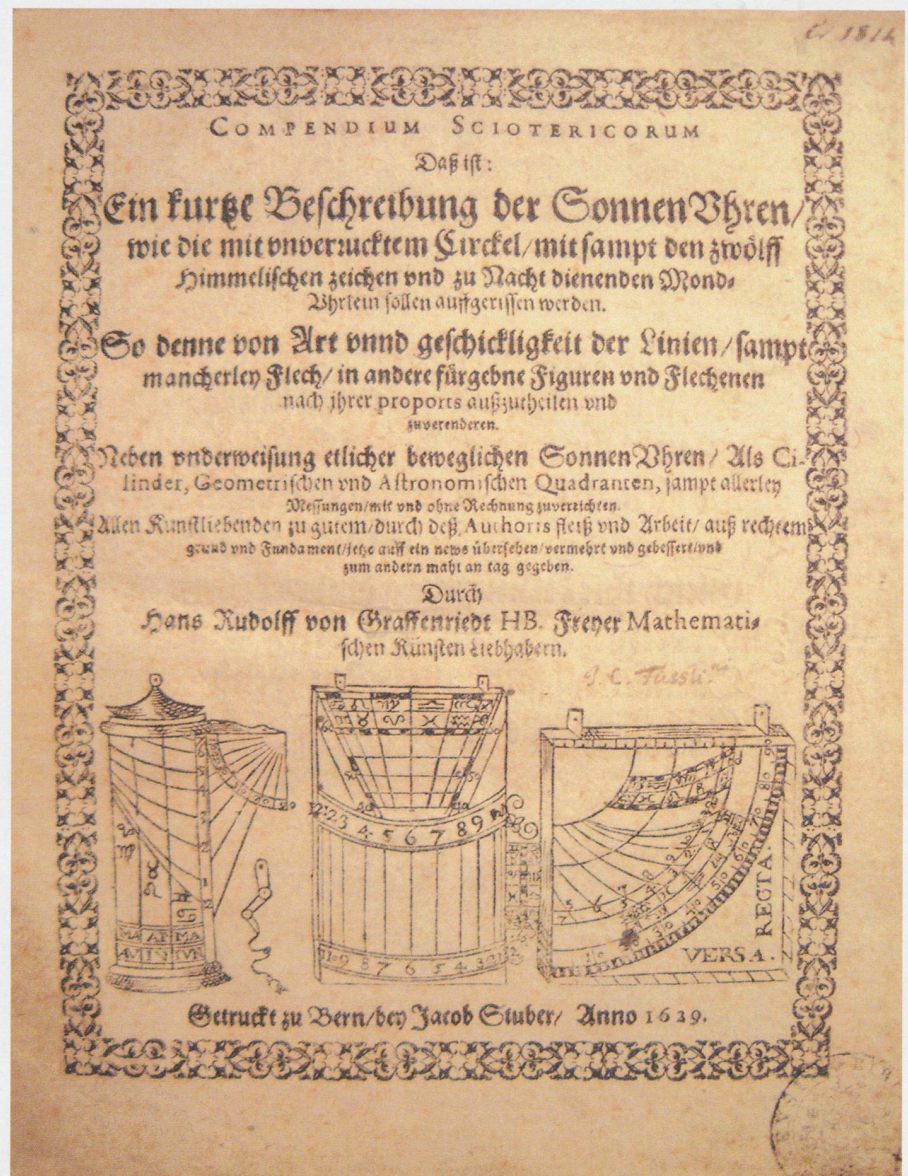 COMPENDIUM SCIOTERICORUM
Daß ist:
Ein kurtze Beschreibung der SonnenVhren/
wie die mit vnverucktem Circkel/mit sampt den zwölff
Himmelischen zeichen vnd zu Nacht dienenden Mond-
Vhrlein sollen auffgerissen werden.
So denne von Art vnnd geschickligkeit der Linien/sampt
mancherley Flech/in andere fürgebne Figuren vnd Flechenen
nach jhrer proports außzutheilen vnd
zuverenderen.
Neben vnderweisung etlicher beweglichen SonnenVhren/ Als Ci-
linder, Geometrischen vnd Astronomischen Quadranten, sampt allerley
Messungen/mit vnd ohne Rechnung zuverrichten.
Allen Kunstliebenden zu gutem/durch deß Authoris fleiß vnd Arbeit/ auß rechtem
grund vnd Fundament/jetzo auff ein news übersehen/vermehrt vnd gebessert/vnd
zum andern mahl an tag gegeben.
Durch
Hans Rudolff von Graffenriedt HB. Freyer Mathemati-
schen Künsten Liebhabern.
12 3 4 5 6 7 8 9
7 6 5
VERSA.
RECTA.
9 8 7 6 5 4 3 2 1
Getruckt zu Bern/bey Jacob Stuber/ Anno 1629.